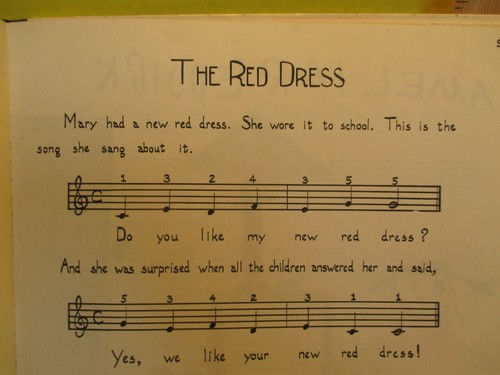 THE RED DRESS
Mary had a new red dress. She wore it to school. This is the
song she sang about it.
1 3 2 4 3 5 5
C
Do you like my new red dress?
And she was surprised when all the children answered her and said,
5 3 4 2 3 1 1
C
Yes, we like your new red dress!